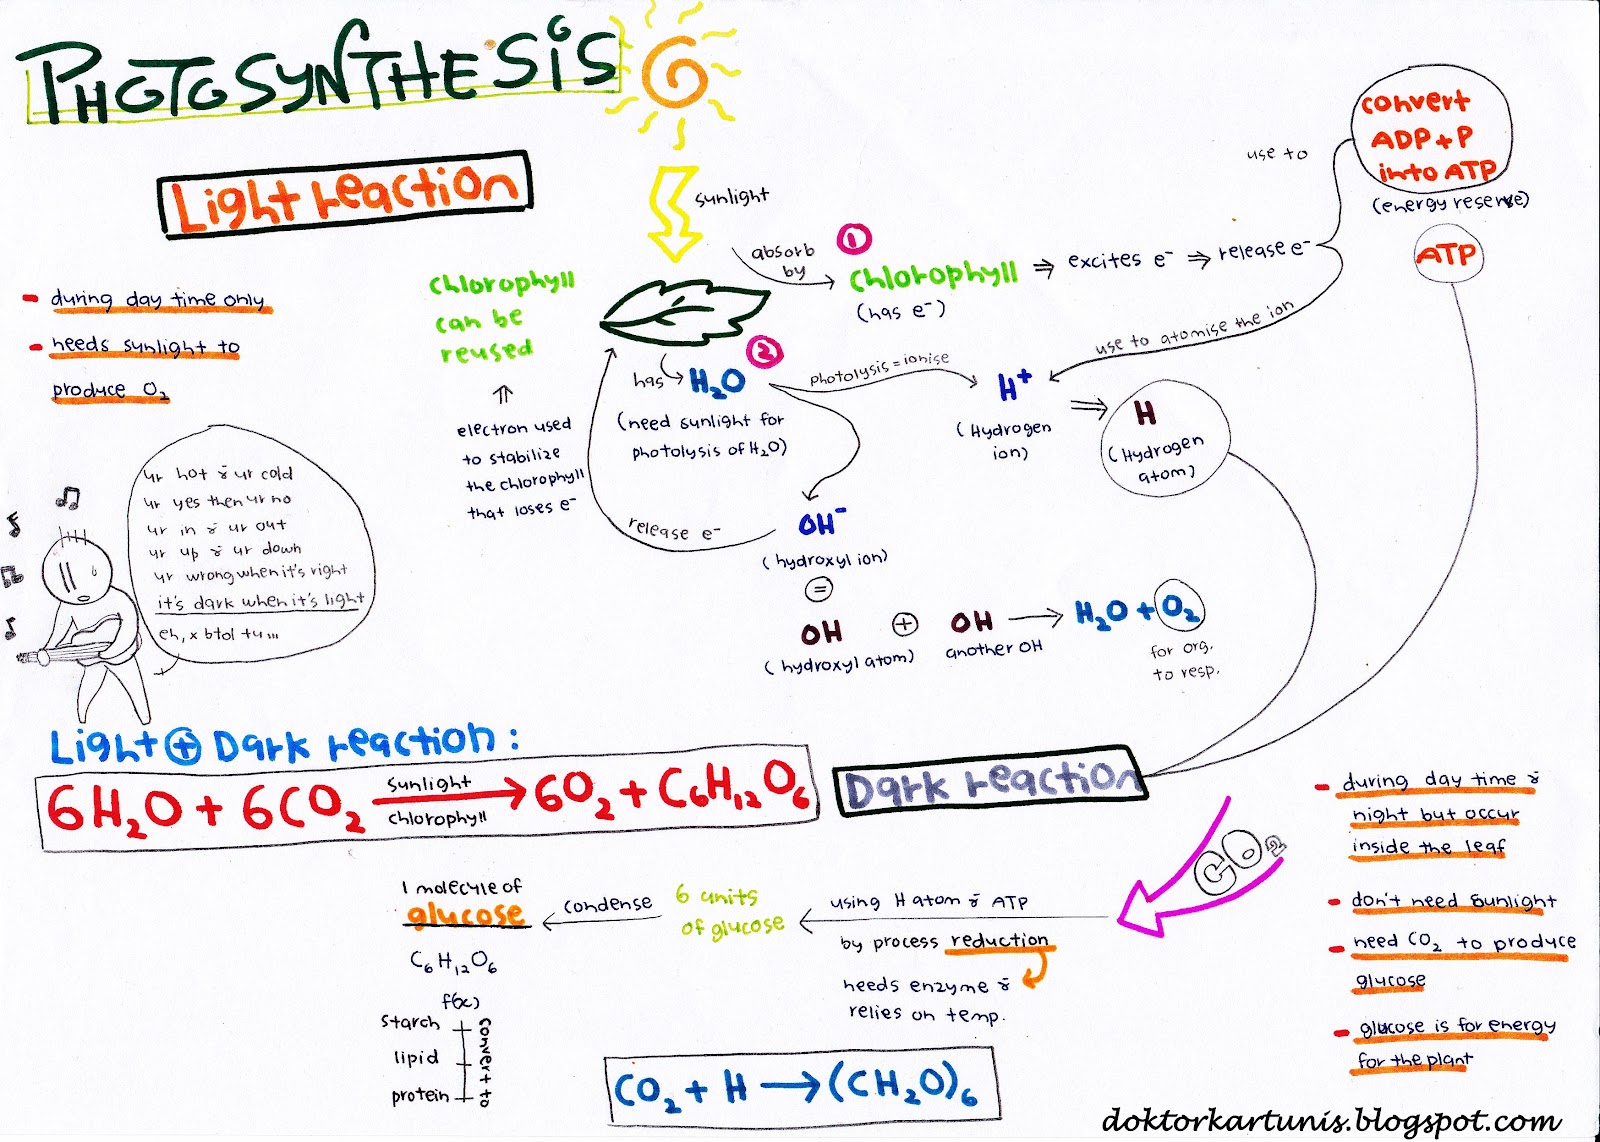 PHOTOSYNTHESIS
Light reaction
- during day time only
- needs sunlight to
produce O₂
sunlight
absorb
by
1
chlorophyll
(has e⁻)
⇒ excites e⁻ ⇒ release e⁻
use to
convert
ADP + P
into ATP
(energy reserve)
ATP
use to atomise the ion
chlorophyll
can be
reused
⇑
electron used
to stabilize
the chlorophyll
that loses e⁻
2
has → H₂O
(need sunlight for
photolysis of H₂O)
photolysis = ionise
H⁺
(Hydrogen
ion)
⇒
H
(Hydrogen
atom)
release e⁻
OH⁻
(hydroxyl ion)
=
OH + OH → H₂O + O₂
(hydroxyl atom)
another OH
for org.
to resp.
ur hot & ur cold
ur yes then ur no
ur in & ur out
ur up & ur down
ur wrong when it's right
it's dark when it's light
eh, x btol tu...
Light + Dark reaction :
6H₂O + 6CO₂ → 6O₂ + C₆H₁₂O₆
sunlight
chlorophyll
Dark reaction
CO₂
- during day time &
night but occur
inside the leaf
- don't need sunlight
- need CO₂ to produce
glucose
- glucose is for energy
for the plant
using H atom & ATP
by process reduction
needs enzyme &
relies on temp.
6 units
of glucose
condense
1 molecule of
glucose
C₆H₁₂O₆
f(x)
starch
lipid
protein
convert to
CO₂ + H → (CH₂O)₆
doktorkartunis.blogspot.com